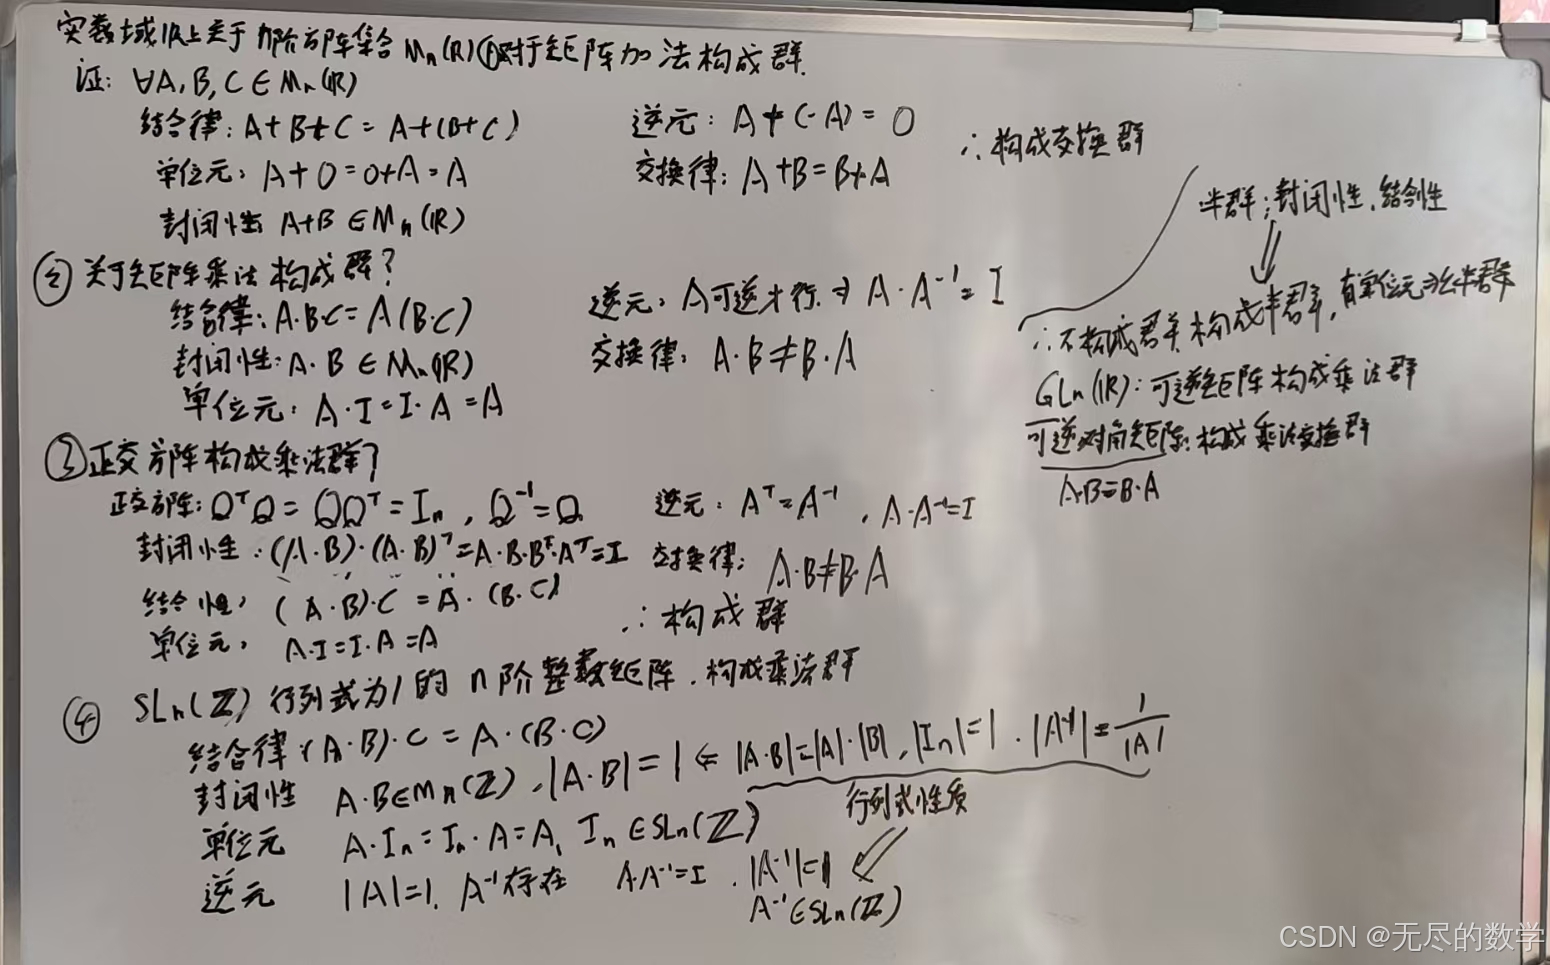 实数域IR上关于n阶方阵集合Mn(R)①对于矩阵加法构成群.
证: ∀A,B,C∈Mn(R)
结合律: A+B+C=A+(B+C)
单位元: A+0=0+A=A
封闭性: A+B∈Mn(R)
逆元: A+(-A)=0
交换律: A+B=B+A
∴构成交换群
半群:封闭性,结合性
② 关于矩阵乘法构成群?
结合律: A·B·C=A(B·C)
封闭性: A·B∈Mn(R)
单位元: A·I=I·A=A
逆元: A可逆才行.⇒A·A⁻¹=I
交换律: A·B≠B·A
∴不构成群 构成半群,有单位元 半群
GLn(R): 可逆矩阵构成乘法群
可逆对角矩阵:构成乘法交换群
A·B=B·A
③ 正交方阵构成乘法群?
正交方阵: QᵀQ=QQᵀ=In, Q⁻¹=Q
封闭性: (A·B)·(A·B)ᵀ=A·B·Bᵀ·Aᵀ=I
结合性: (A·B)·C=A·(B·C)
单位元: A·I=I·A=A
逆元: Aᵀ=A⁻¹, A·A⁻¹=I
交换律: A·B≠B·A
∴构成群
④ SLn(Z) 行列式为1的n阶整数矩阵.构成乘法群
结合律:(A·B)·C=A·(B·C)
封闭性 A·B∈Mn(Z),|A·B|=1⇐|A·B|=|A|·|B|,|In|=1.|A⁻¹|=1/|A|
行列式性质
单位元 A·In=In·A=A, In∈SLn(Z)
逆元 |A|=1, A⁻¹存在 A·A⁻¹=I .|A⁻¹|=1
A⁻¹∈SLn(Z)
CSDN @无尽的数学